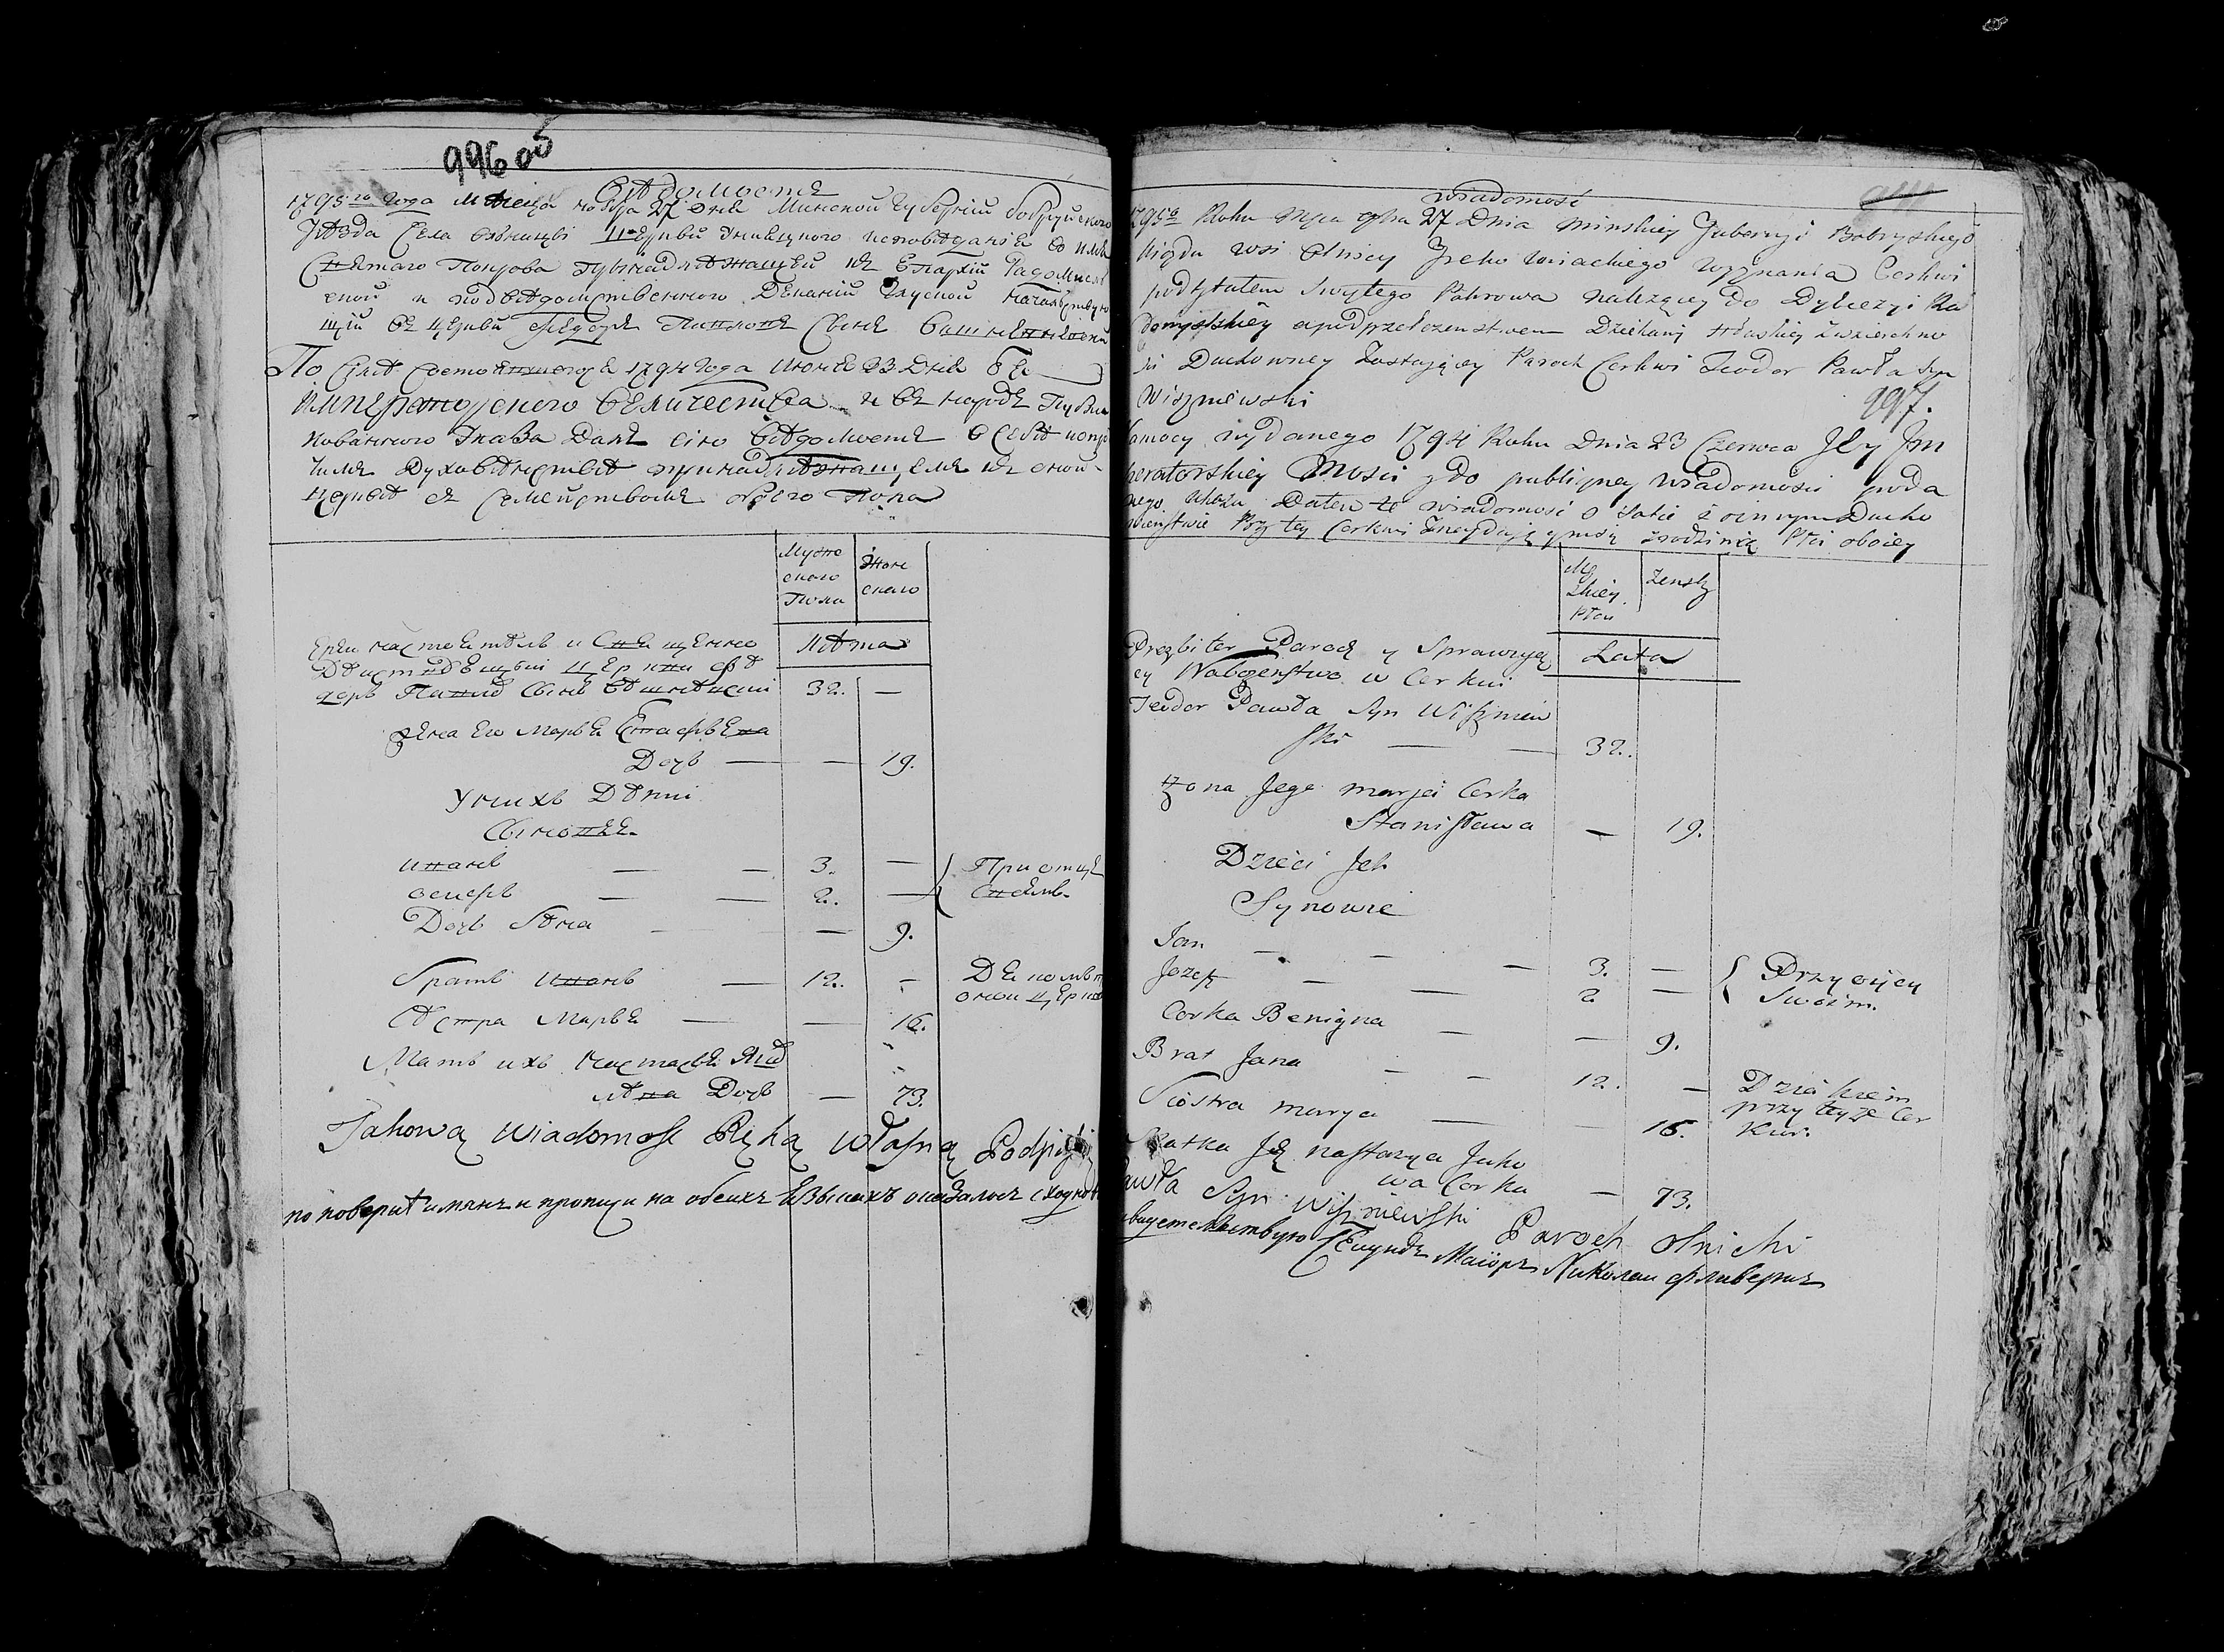 996 об
Вѣдомость
1795го года мѣсяца ноября 27 дня Минской губерніи бобруйского
Уѣзда Села Ольницы Церкви Униацкого исповѣданія во имя
Святаго Покрова принадлѣжащей къ Епархіи Радомысль
ской и подвѣдомственного Деканіи Глуской
щій въ церкви Ѳедоръ Павловъ Сынъ
По силѣ состоявшегося 1794 года июня 23 дня Ея
Императорского Величества и въ народъ Публи
кованного Указа Данъ сию вѣдомость о себѣ и
чимъ Духовѣнствѣ принадлѣжащемъ къ оной
церквѣ съ Семействомъ обоего Пола
Муже
ского
Пола
Жен
ского
Лѣта
Ереи настоятѣль и Священно
Дѣйствующій церкви Ѳѣ
доръ Павла Сынъ Вѣшнѣвский 32. —
Жена Его Марья Стасѣвева
Дочь — — 19.
У нихъ Дѣти
Сыновья
Иванъ — — 3. —
Осифъ — — 2. —
При отцѣ
Своемъ
Дочь — — 9.
Братъ Иванъ — 12. —
Дьякомъ при
оной церкви
Сѣстра Марья — — 16.
Мать ихъ Настасья
Дочь — 73.
Takową Wiadomość Ręką Własną Podpisuię
по поверкѣ имянъ и прописи на обеихъ языкахъ оказалось сходно

Wiadomość
1795o Roku Mca 9bra 27 Dnia Minskiey Guberyi Bobryskiego
Uiezdu wsi Olnicy Greko Uniackiego wyznania Cerkwi
podtytułem Swiętego Pokrowa należącey do Dyecezyi Ra
domyslskiey a pod przełożenstwem Dziekanij Hłuskiey Zwierzchno
sci Duchowney Zostaiącey Paroch Cerkwi Teodor Pawła Syn
Wiszniewski
997.
Zamocy wydanego 1794 Roku Dnia 23 Czerwca Jey Jm
peratorskiey Mosci y do publiczney wiadomosci poda
nego Ukazu Dałem te wiadomość o Sobie
wieństwie Przy tey Cerkwi Znayduiącymsię z rodziną Płci oboiey
Mę
skiey
Płci
Zensk
Lata
Prezbiter Paroch y Sprawuią
cy Nabożeństwo w Cerkwi
Teodor Pawła Syn Wiszniew
ski — — 32.
Zona Jego Maryi Corka
Stanisława — 19.
Dzieci Jch
Synowie
Jan — — — 3. —
Jozef — — 2 —
Przy oycu
Swoim.
Corka Benigna — — 9.
Brat Jana — — 12. —
Dziakiem
przy teyże Cer
kwi.
Siostra Marya — — 16.
Matka Jch Nastazya Jako
wa Corka — 73.
Pawła Syn Wiszniewski Paroch Olnicki
свидетельствую Секундъ Маіоръ Николаи